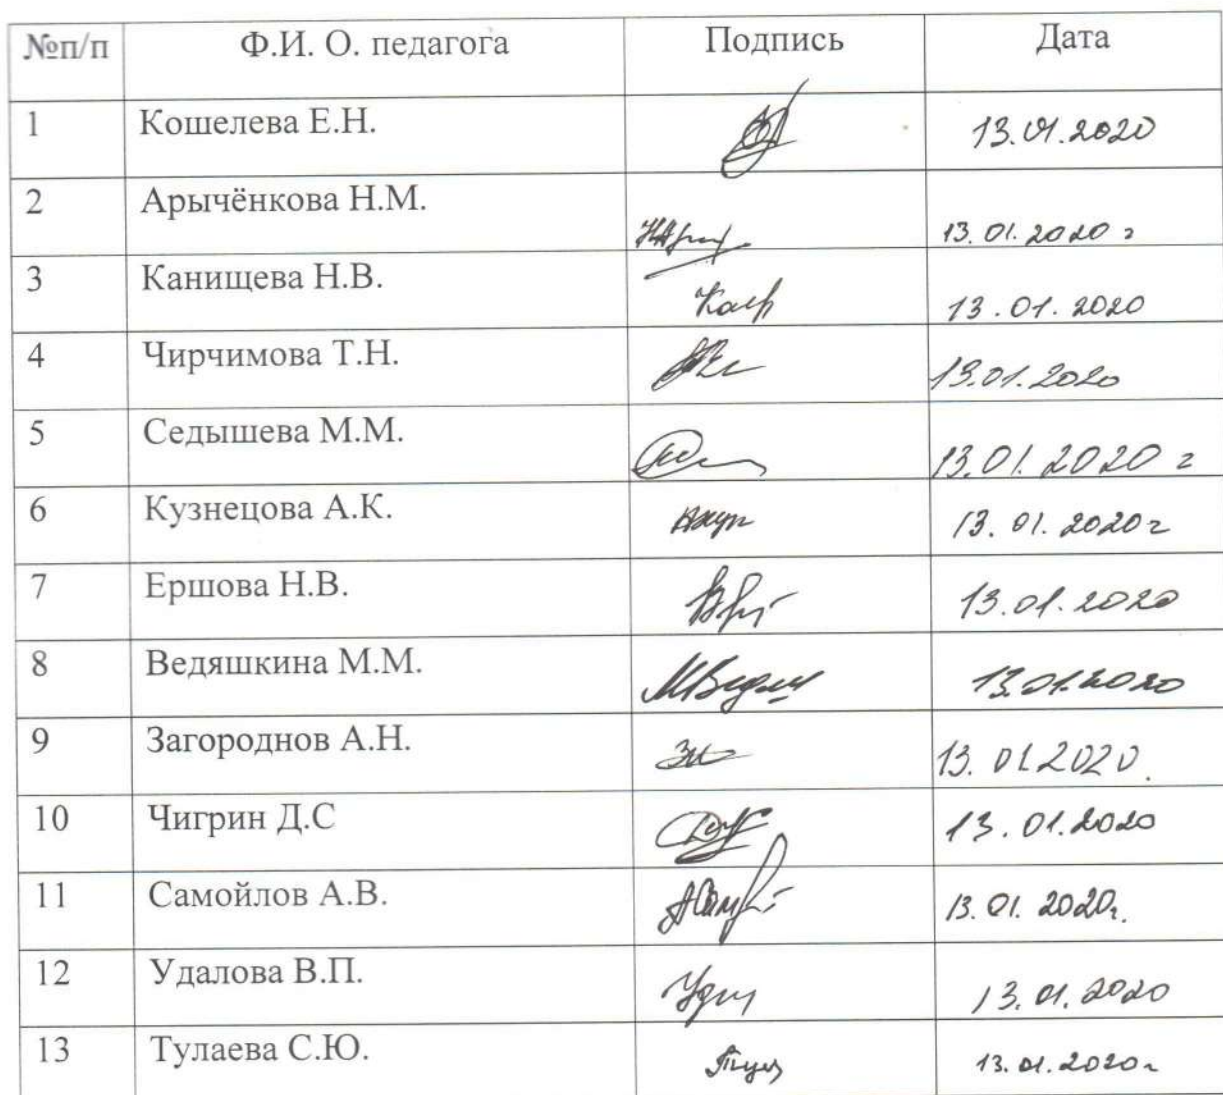 №п/п Ф.И. О. педагога Подпись Дата
1 Кошелева Е.Н. 13.01.2020
2 Арычёнкова Н.М. 13.01.2020 г
3 Канищева Н.В. 13.01.2020
4 Чирчимова Т.Н. 13.01.2020
5 Седышева М.М. 13.01.2020 г
6 Кузнецова А.К. 13.01.2020г
7 Ершова Н.В. 13.01.2020
8 Ведяшкина М.М. 13.01.2020
9 Загороднов А.Н. 13.01.2020.
10 Чигрин Д.С 13.01.2020
11 Самойлов А.В. 13.01.2020г.
12 Удалова В.П. 13.01.2020
13 Тулаева С.Ю. 13.01.2020г